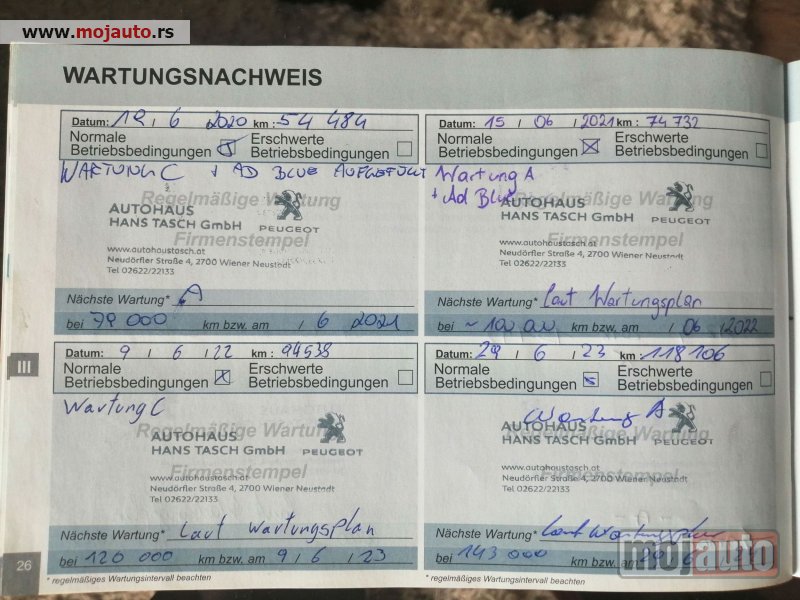 www.mojauto.rs
WARTUNGSNACHWEIS
Datum: 12 / 6 2020 km: 54 484
Normale Betriebsbedingungen
Erschwerte Betriebsbedingungen
WARTUNG C + AD BLUE AUFGEFÜLLT
Regelmäßige Wartung
AUTOHAUS
HANS TASCH GmbH
PEUGEOT
Firmenstempel
www.autohaustasch.at
Neudörfler Straße 4, 2700 Wiener Neustadt
Tel 02622/22133
Nächste Wartung* A
bei 79 000 km bzw. am / 6 2021
Datum: 15 / 06 / 2021 km: 74 732
Normale Betriebsbedingungen
Erschwerte Betriebsbedingungen
Wartung A
+ Ad Blue
Regelmäßige Wartung
AUTOHAUS
HANS TASCH GmbH
PEUGEOT
Firmenstempel
www.autohaustasch.at
Neudörfler Straße 4, 2700 Wiener Neustadt
Tel 02622/22133
Nächste Wartung* laut Wartungsplan
bei ~ 100 000 km bzw. am / 06 / 2022
III
Datum: 9 / 6 / 22 km: 94538
Normale Betriebsbedingungen
Erschwerte Betriebsbedingungen
Wartung C
Regelmäßige Wartung
AUTOHAUS
HANS TASCH GmbH
PEUGEOT
Firmenstempel
www.autohaustasch.at
Neudörfler Straße 4, 2700 Wiener Neustadt
Tel 02622/22133
Nächste Wartung* laut Wartungsplan
bei 120 000 km bzw. am 9 / 6 / 23
Datum: 29 / 6 / 23 km: 118106
Normale Betriebsbedingungen
Erschwerte Betriebsbedingungen
Wartung A
Regelmäßige Wartung
AUTOHAUS
HANS TASCH GmbH
PEUGEOT
Firmenstempel
www.autohaustasch.at
Neudörfler Straße 4, 2700 Wiener Neustadt
Tel 02622/22133
Nächste Wartung* laut Wartungsplan
bei 143 000 km bzw. am
mojauto
26
* regelmäßiges Wartungsintervall beachten
* regelmäßiges Wartungsintervall beachten